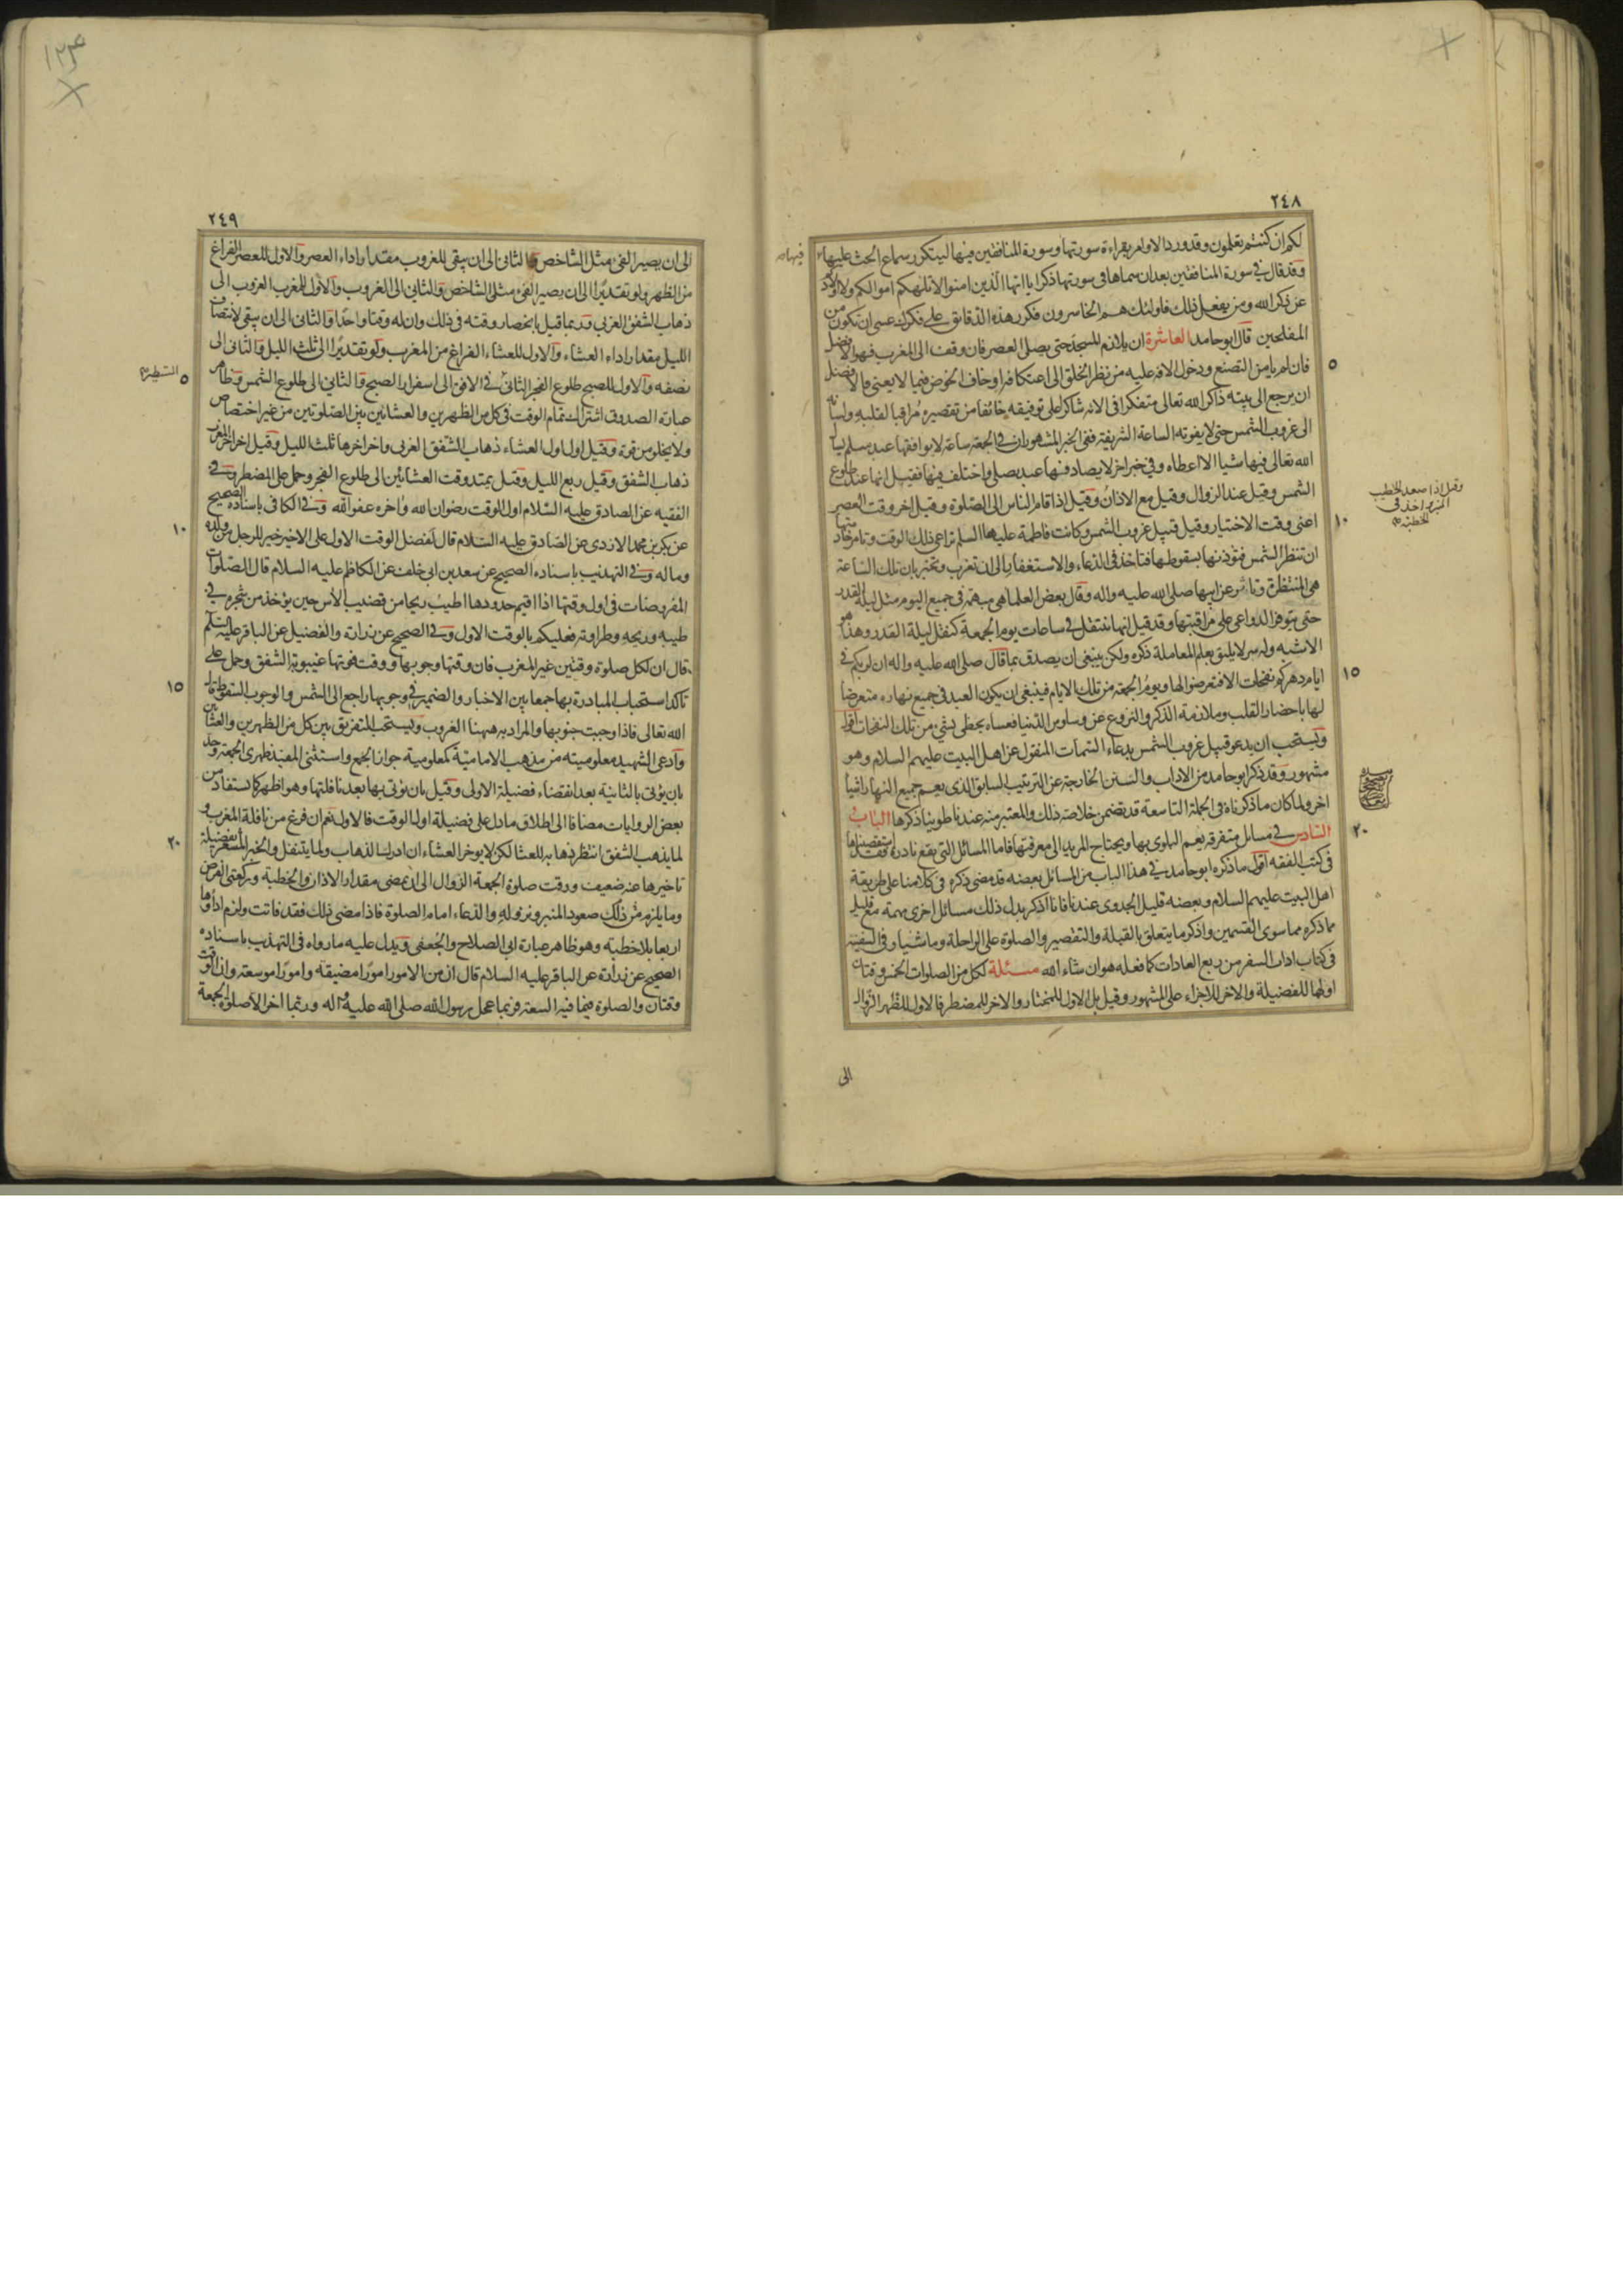 ٢٤٨
لكم ان كنتم تعلمون وقد ورد الاوامر بقراءة سورتها وسورة المنافقين فيها ليتكرر سماع الحث عليها
وقد قال في سورة المنافقين بعد ان سماها في سورتها ذكرا يا ايها الذين امنوا لا تلهكم اموالكم ولا اولادكم
عن ذكر الله ومن يفعل ذلك فاولئك هم الخاسرون فكرر هذه الدقايق على فكرك عسى ان تكون من
المفلحين قال ابو حامد العاشرة ان يلازم المسجد حتى يصلى العصر فان وقف الى المغرب فهو الافضل
٥
فان لم يامن التصنع ودخول الافة عليه من نظر الخلق الى اعتكافه او خاف الخوض فيما لا يعنى فالافضل
ان يرجع الى بيته ذاكرا لله تعالى متفكرا فى الائه شاكرا على توفيقه خائفا من تقصيره مراقبا لقلبه ولسانه
الى غروب الشمس حتى لا يفوته الساعة الشريفة ففى الخبر المشهور ان في الجمعة ساعة لا يوافقها عبد مسلم يسأل
الله تعالى فيها شيا الا اعطاه وفي خبر اخر لا يصادفها عبد يصلى واختلف فيها فقيل انها عند طلوع
الشمس وقيل عند الزوال وقيل مع الاذان وقيل اذا قام الناس الى الصلوة وقيل اخر وقت العصر
وقيل اذا صعد الخطيب
المنبر واخذ فى
الخطبة
١٠
اعنى وقت الاختيار وقيل قبيل غروب الشمس وكانت فاطمة عليها السلم تراعى ذلك الوقت وتامر خادمتها
ان تنظر الشمس فتؤذنها بسقوطها فتاخذ فى الدعاء والاستغفار الى ان تغرب وتخبر بان تلك الساعة
هى المنتظرة وتاثر عن ابيها صلى الله عليه واله وقال بعض العلما هى مبهمة فى جميع اليوم مثل ليلة القدر
حتى يتوفر الدواعى على مراقبتها وقد قيل انها تنتقل في ساعات يوم الجمعة كتنقل ليلة القدر وهذا هو
الاشبه وله سر لا يليق بعلم المعاملة ذكره ولكن ينبغى ان يصدق بما قال صلى الله عليه واله ان لربكم فى
١٥
ايام دهركم نفحات الا فتعرضوا لها ويوم الجمعة من تلك الايام فينبغى ان يكون العبد فى جميع نهاره متعرضا
لها باحضار القلب وملازمة الذكر والنزوع عن وساوس الدنيا فعساه يحظى بشئ من تلك النفحات اقول
ويستحب ان يدعو قبيل غروب الشمس بدعاء السمات المنقول عن اهل البيت عليهم السلام وهو
مشهور وقد ذكر ابو حامد من الاداب والسنن الخارجة عن الترتيب السابق الذى يعم جميع النهار اشيا
اخر ولما كان ما ذكرناه فى الجملة التاسعة قد يتضمن خلاصة ذلك والمعتبر منه عندنا طوينا ذكرها الباب
٢٠
السادس في مسايل متفرقة يعم البلوى بها ويحتاج المريد الى معرفتها فاما المسائل التى يقع نادرة فقد استقصيناها
فى كتب الفقه اقول ما ذكره ابو حامد في هذا الباب من المسائل بعضه قد مضى ذكره فى كلامنا على طريقة
اهل البيت عليهم السلام وبعضه قليل الجدوى عندنا فانا اذكر بدل ذلك مسائل اخرى مهمة مع قليل
مما ذكره مما سوى القسمين واذكر ما يتعلق بالقبلة والتقصير والصلوة على الراحلة وماشيا وفى السفينة
فى كتاب اداب السفر من ربع العادات كما فعله هو ان شاء الله مسئلة لكل من الصلوات الخمس وقتان
اولهما للفضيلة والاخر للاجزاء على المشهور وقيل بل الاول للمختار والاخر للمضطر فالاول للظهر الزوال
الى
٢٤٩
الى ان يصير الفئ مثل الشاخص والثانى الى ان يبقى للغروب مقدار اداء العصر والاول للعصر الفراغ
من الظهر ولو تقديرا الى ان يصير الفئ مثلى الشاخص والثانى الى الغروب والاول للمغرب الغروب الى
ذهاب الشفق الغربي وربما قيل بانحصار وقته فى ذلك وان له وقتا واحدا والثانى الى ان يبقى لانتصاف
الليل مقدار اداء العشاء والاول للعشاء الفراغ من المغرب ولو تقديرا الى ثلث الليل والثانى الى
٥
نصفه والاول للصبح طلوع الفجر الثانى في الافق الى اسفرار الصبح والثانى الى طلوع الشمس وظاهر
عبارة الصدوق اشتراك تمام الوقت فى كل من الظهرين والعشائين بين الصلوتين من غير اختصاص
ولا يخلو من قوة وقيل اول العشاء ذهاب الشفق الغربى واخر اخرها ثلث الليل وقيل اخر اخر المغرب
ذهاب الشفق وقيل ربع الليل وقيل يمتد وقت العشائين الى طلوع الفجر وحمل على المضطر وفى
الفقيه عن الصادق عليه السلام اول الوقت رضوان الله واخره عفو الله وفى الكافى باسناده الصحيح
١٠
عن بكر بن محمد الازدى عن الصادق عليه السلام قال لفضل الوقت الاول على الاخير خير للرجل من ولده
وماله وفى التهذيب باسناده الصحيح عن سعد بن ابى خلف عن الكاظم عليه السلام قال الصلوات
المفروضات فى اول وقتها اذا اقيم حدودها اطيب ريحا من قضيب الاس حين يؤخذ من شجره في
طيبه وريحه وطراوته فعليكم بالوقت الاول وفى الصحيح عن زرارة والفضيل عن الباقر عليه السلم
قال ان لكل صلوة وقتين غير المغرب فان وقتها وجوبها ووقت فوتها غيبوبة الشفق وحمل على
١٥
تاكد استحباب المبادرة بها جمعا بين الاخبار والضمير فى وجوبها راجع الى الشمس والوجوب السقوط قال
الله تعالى فاذا وجبت جنوبها والمراد به ههنا الغروب ويستحب التفريق بين كل من الظهرين والعشائين
وادعى الشهيد معلوميته من مذهب الامامية كمعلومية جواز الجمع واستثنى المفيد ظهرى الجمعة وحد
بان يؤتى بالثانية بعد انقضاء فضيلة الاولى وقيل بان يؤتى بها بعد نافلتها وهو اظهر كما يستفاد من
بعض الروايات مضافا الى اطلاق ما دل على فضيلة اول الوقت فالاول نعم ان فرغ من نافلة المغرب و
٢٠
لما يذهب الشفق انتظر ذهابه للعشا لكن لا يوخر العشاء ان ادرك الذهاب ولما يتنفل والخبر المشعر بافضلية
تاخيرها عنه ضعيف ووقت صلوة الجمعة الزوال الى ان يمضى مقدار الاذان والخطبة وركعتى الفرض
وما يلزم من ذلك صعود المنبر ونزوله والدعاء امام الصلوة فاذا مضى ذلك فقد فاتت ولزم اداؤها
اربعا بلا خطبة وهو ظاهر عبارة ابى الصلاح والجعفى ويدل عليه ما رواه فى التهذيب باسناده
الصحيح عن زرارة عن الباقر عليه السلام قال ان من الامور امورا مضيقة وامورا موسعة وان الوقت
وقتان والصلوة فيما فيه السعة فربما عجل رسول الله صلى الله عليه واله وربما اخر الا صلوة الجمعة